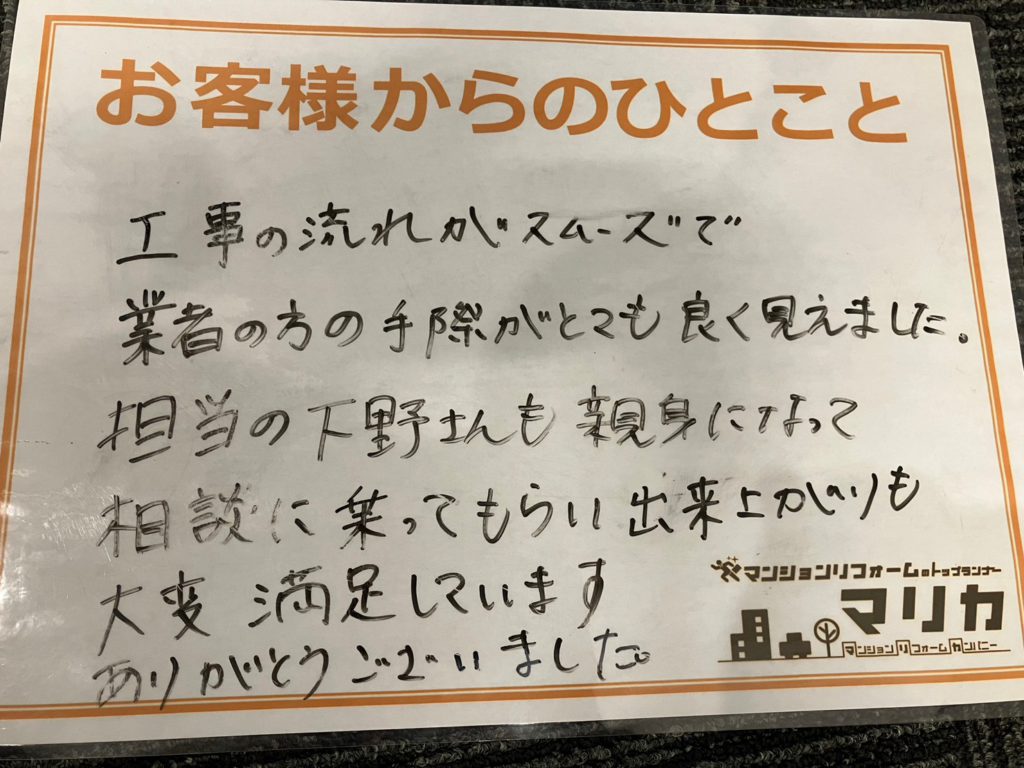 お客様からのひとこと
工事の流れがスムーズで
業者の方の手際がとても良く見えました。
担当の下野さんも親身になって
相談に乗ってもらい出来上がりも
大変満足しています
ありがとうございました。
マンションリフォームのトップランナー
マリカ
マンションリフォームカンパニー